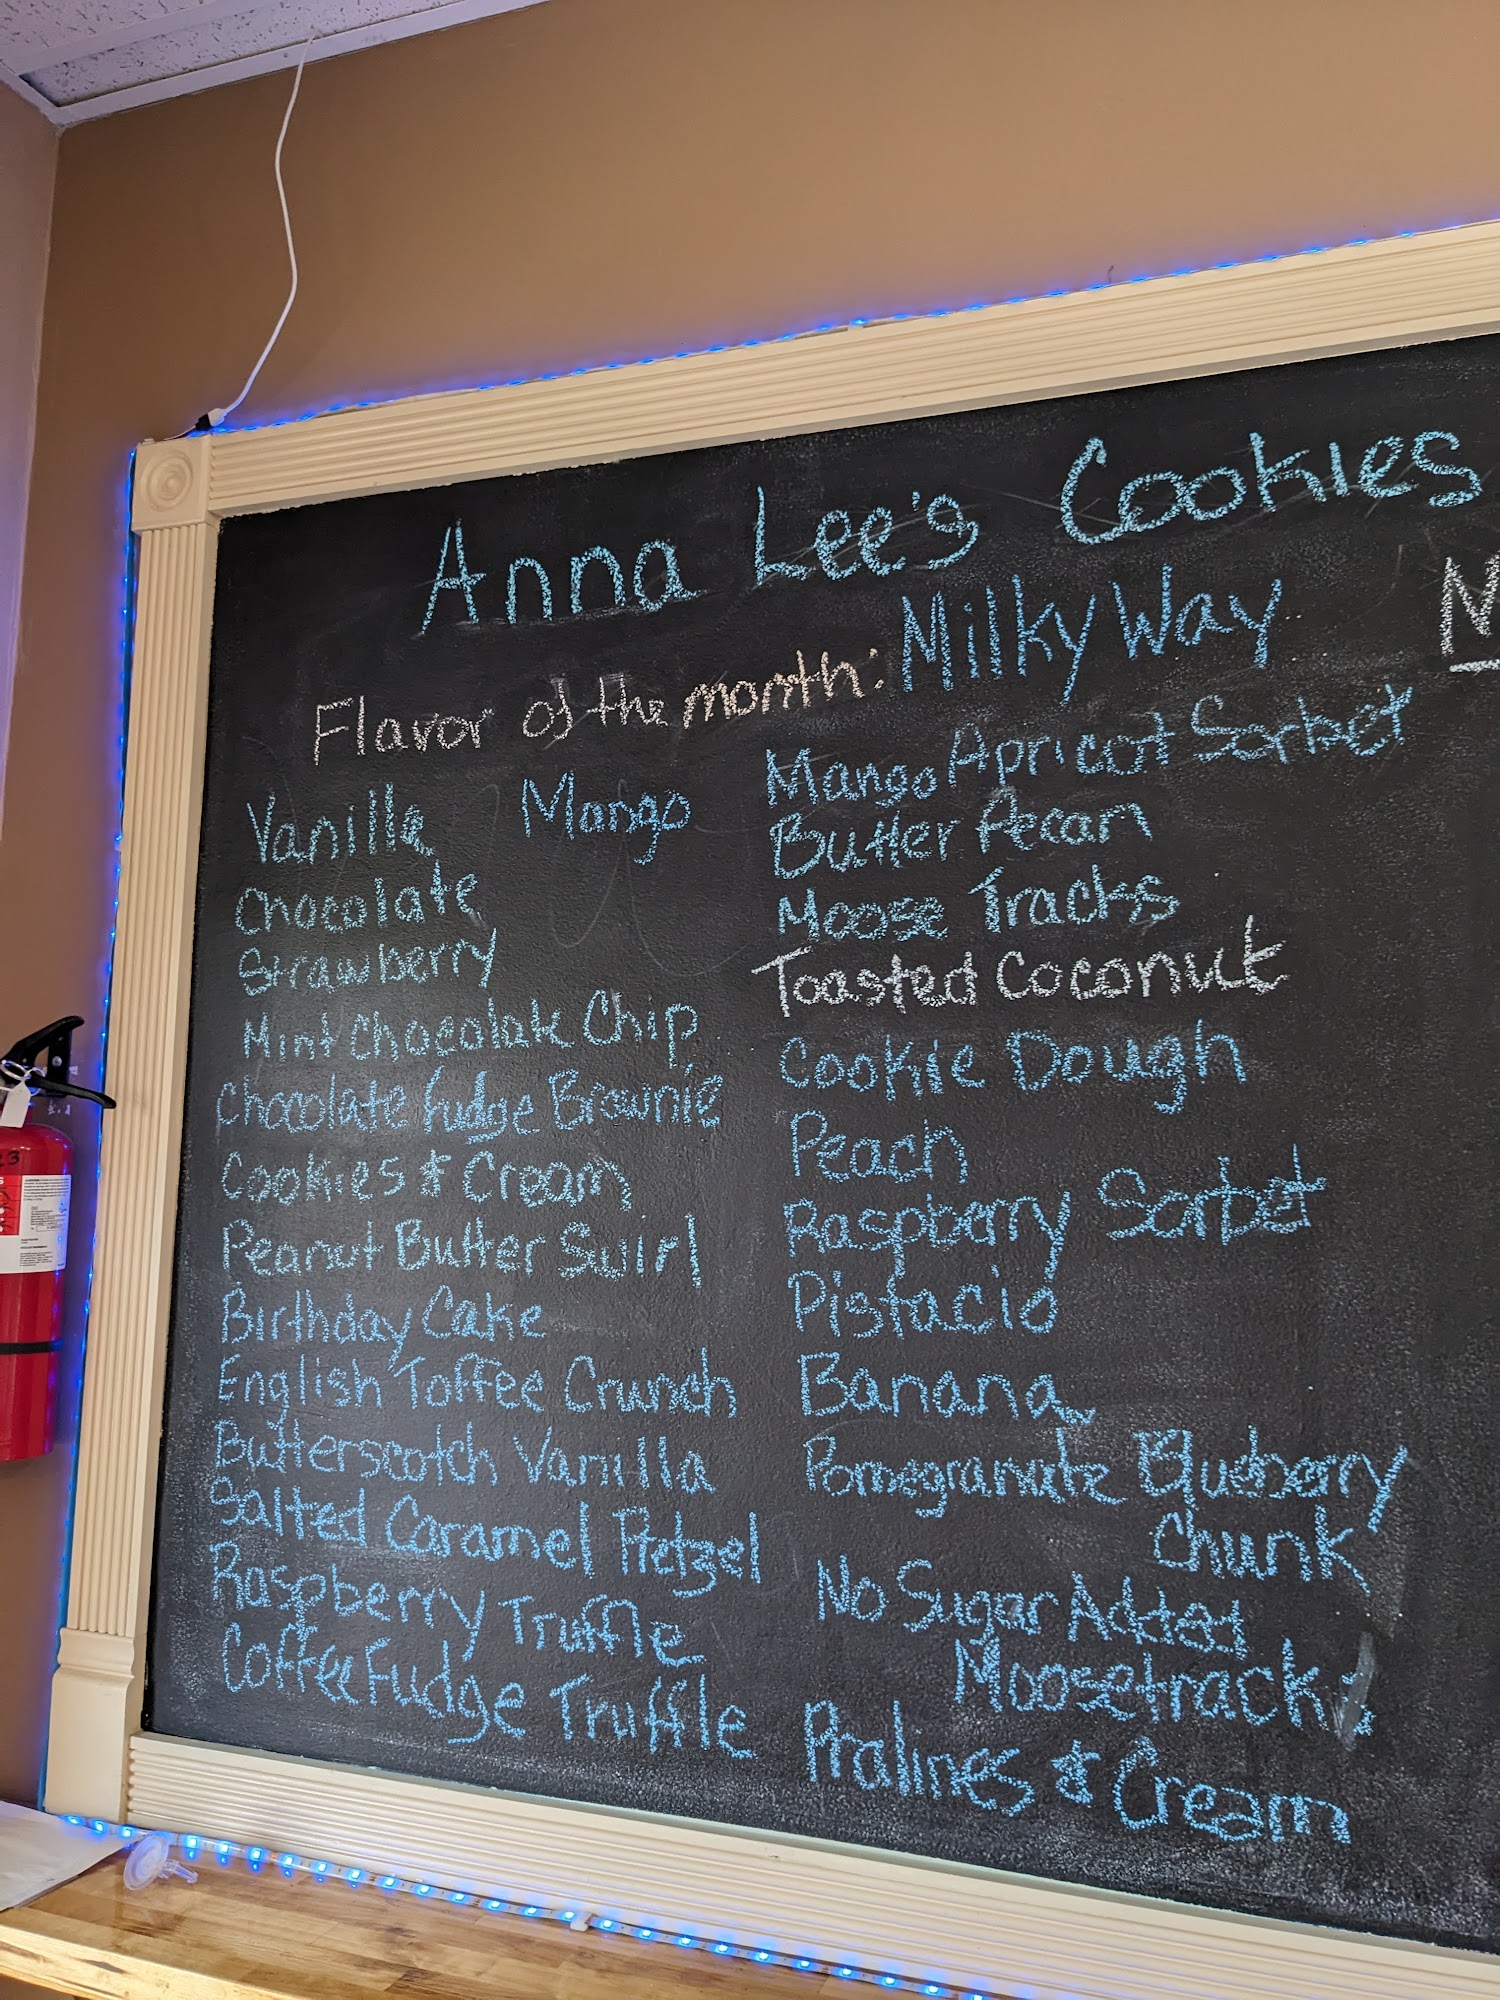 Anna Lee's Cookies
Flavor of the month: Milky Way
Vanilla
Mango
Chocolate
Strawberry
Mint Chocolate Chip
Chocolate Fudge Brownie
Cookies & Cream
Peanut Butter Swirl
Birthday Cake
English Toffee Crunch
Butterscotch Vanilla
Salted Caramel Pretzel
Raspberry Truffle
Coffee Fudge Truffle
Mango Apricot Sorbet
Butter Pecan
Moose Tracks
Toasted Coconut
Cookie Dough
Peach
Raspberry Sorbet
Pistacio
Banana
Pomegranate Blueberry
Chunk
No Sugar Added
Moosetracks
Pralines & Cream